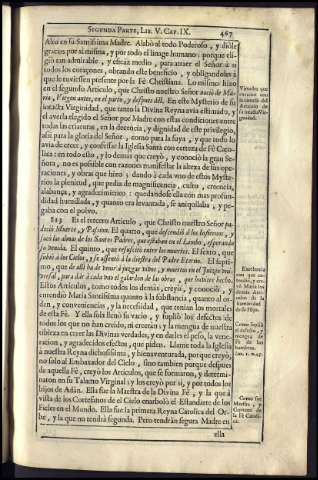 SEGUNDA PARTE, LIB. V. CAP. IX. 467
Alçò en fu Santifsima Madre. Alabò al todo Poderofo, y diòle
gracias por sì mifma, y por todo el linage humano; porque eli-
giò tan admirable, y eficàz medio, para atraer el Señor à sì
todos los coraçones, obrando efte beneficio, y obligandolos à
que le tuviefsen prefente por la Fè Chriftiana. Lo mifmo hizo
en el fegundo Articulo, que Chrifto nueftro Señor naciò de Ma-
ria, Virgen antes, en el parto, y defpues del. En efte Myfterio de fu
intacta Virginidad, que tanto la Divina Reyna avia eftimado, y
el averla elegido el Señor por Madre con eftas condiciones entre
todas las criaturas, en la decencia, y dignidad de efte privilegio,
afsi para la gloria del Señor, como para la fuya, y que todo lo
avia de creer, y confefsar la Iglefia Santa con certeza de Fè Cato-
lica: en todo efto, y lo demàs que creyò, y conociò la gran Se-
ñora, no es pofsible con razones manifeftar la alteza de fus ope-
raciones, y obras que hizo; dando à cada vno de eftos Myfte-
rios la plenitud, que pedia de magnificencia, culto, creencia,
alabança, y agradecimiento: quedandofe ella con mas profun-
didad humillada, y quanto era levantada, fe aniquilaba, y pe-
gaba con el polvo.
Es el tercero Articulo, que Chrifto nueftro Señor pa-
deciò Muerte, y Pafsion. El quarto, que defcendiò à los Infiernos, y
facò las almas de los Santos Padres, que eftaban en el Limbo, efperando
fu Venida. El quinto, que refucitò entre los muertos. El fexto, que
fubiò à los Cielos, y fe afsentò à la dieftra del Padre Eterno. El fepti-
mo, que de allà ha de venir à juzgar vivos, y muertos en el Juizio vni-
verfal, para dàr à cada vno el galardon de las obras, que huviere hecho.
Eftos Articulos, como todos los demàs, creyò, y conociò, y
entendiò Maria Santifsima quanto à la fubftancia, quanto al or-
den, y conveniencia, y la necefsidad, que tenian los mortales
de efta Fè. Y ella fola llenò fu vacio, y fupliò los defectos de
todos los que no han creìdo, ni creeràn; y la mengua de nueftra
tibieza en creer las Divinas verdades, y en darles el pefo, la vene-
racion, y agradecidos efectos, que piden. Llame toda la Iglefia
à nueftra Reyna dichofifsima, y bienaventurada, porque creyò,
no folo al Embaxador del Cielo, fino tambien porque defpues
de aquella Fè, creyò los Articulos, que fe formaron, y determi-
naron en fu Talamo Virginal: y los creyò por sì, y por todos los
hijos de Adàn. Ella fue la Maeftra de la Divina Fè, y la que à
vifta de los Cortefanos de el Cielo enarbolò el Eftandarte de los
Fieles en el Mundo. Ella fue la primera Reyna Catolica del Or-
be, y la que no tendrà fegunda. Pero tendràn fegura Madre en
ella